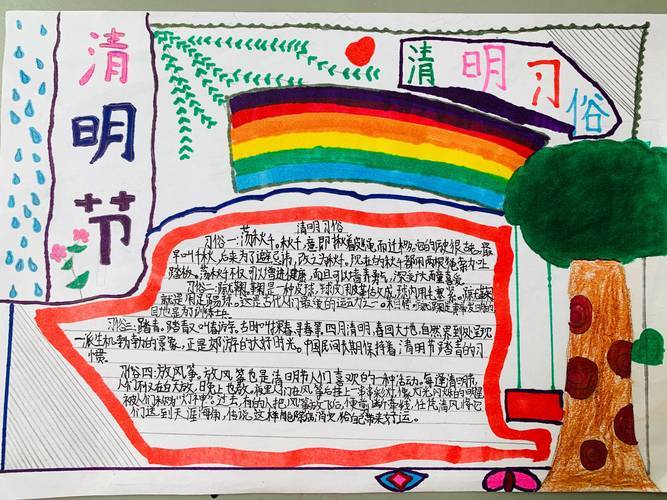 清明节
清明习俗
清明习俗
习俗一:荡秋千。秋千,意即揪着皮绳而迁移。它的历史很古老,最
早叫千秋,后来为了避忌讳,改为秋千。
踏板。荡秋千不仅可以增进健康,而且可以培养勇敢精神,
习俗二:蹴鞠。鞠是一种皮球,球皮用皮革做成,球内用毛塞紧。蹴鞠
就是用足踢球。这是古代人们最爱的运动之一。
习俗三:踏青。踏青又叫春游。古时叫探春、寻春。四月清明,春回大地,自然界到处呈现
一派生机勃勃的景象,正是郊游的大好时光。中国民间长期保持着清明节踏青的习
惯。
习俗四:放风筝。放风筝也是清明节人们喜欢的一种活动。每逢清明节,
人们不仅白天放,夜里也放。夜里人们在风筝后挂上一串彩灯,像闪光的明星
被人们称为"灯神"。过去,有的人把风筝放飞后,便剪断牵线,任凭清风将它
们送到天涯海角,传说这样能除病消灾给自己带来好运。